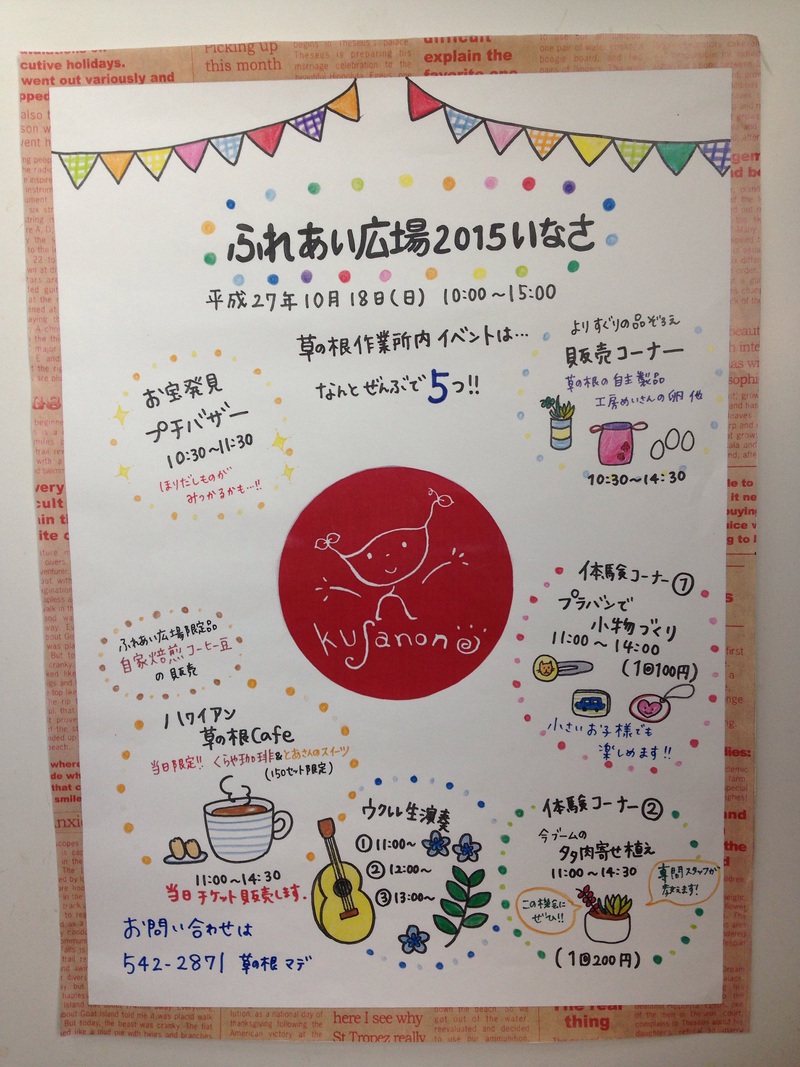 ふれあい広場2015いなさ
平成27年10月18日(日) 10:00〜15:00
草の根作業所内イベントは…
なんとぜんぶで5つ!!
お宝発見
プチバザー
10:30〜11:30
ほりだしものが
みつかるかも…!!
よりすぐりの品ぞろえ
販売コーナー
草の根の自主製品
工房めいさんの卵 他
10:30〜14:30
kusanone
体験コーナー①
プラバンで
小物づくり
11:00〜14:00
(1回100円)
小さいお子様でも
楽しめます!!
ふれあい広場限定品
自家焙煎コーヒー豆
の販売
ハワイアン
草の根Cafe
当日限定!! くらや珈琲&とあさんのスイーツ
(150セット限定)
11:00〜14:30
当日チケット販売します.
ウクレレ生演奏
①11:00〜
②12:00〜
③13:00〜
体験コーナー②
今ブームの
多肉寄せ植え
11:00〜14:30
専門スタッフが
教えます!
この機会に
ぜひ!!
(1回200円)
お問い合わせは
542-2871 草の根マデ
cutive holidays.
went out variously and
Picking up
this month
difficult
explain the
here I see why
St Tropez really
The real
thing